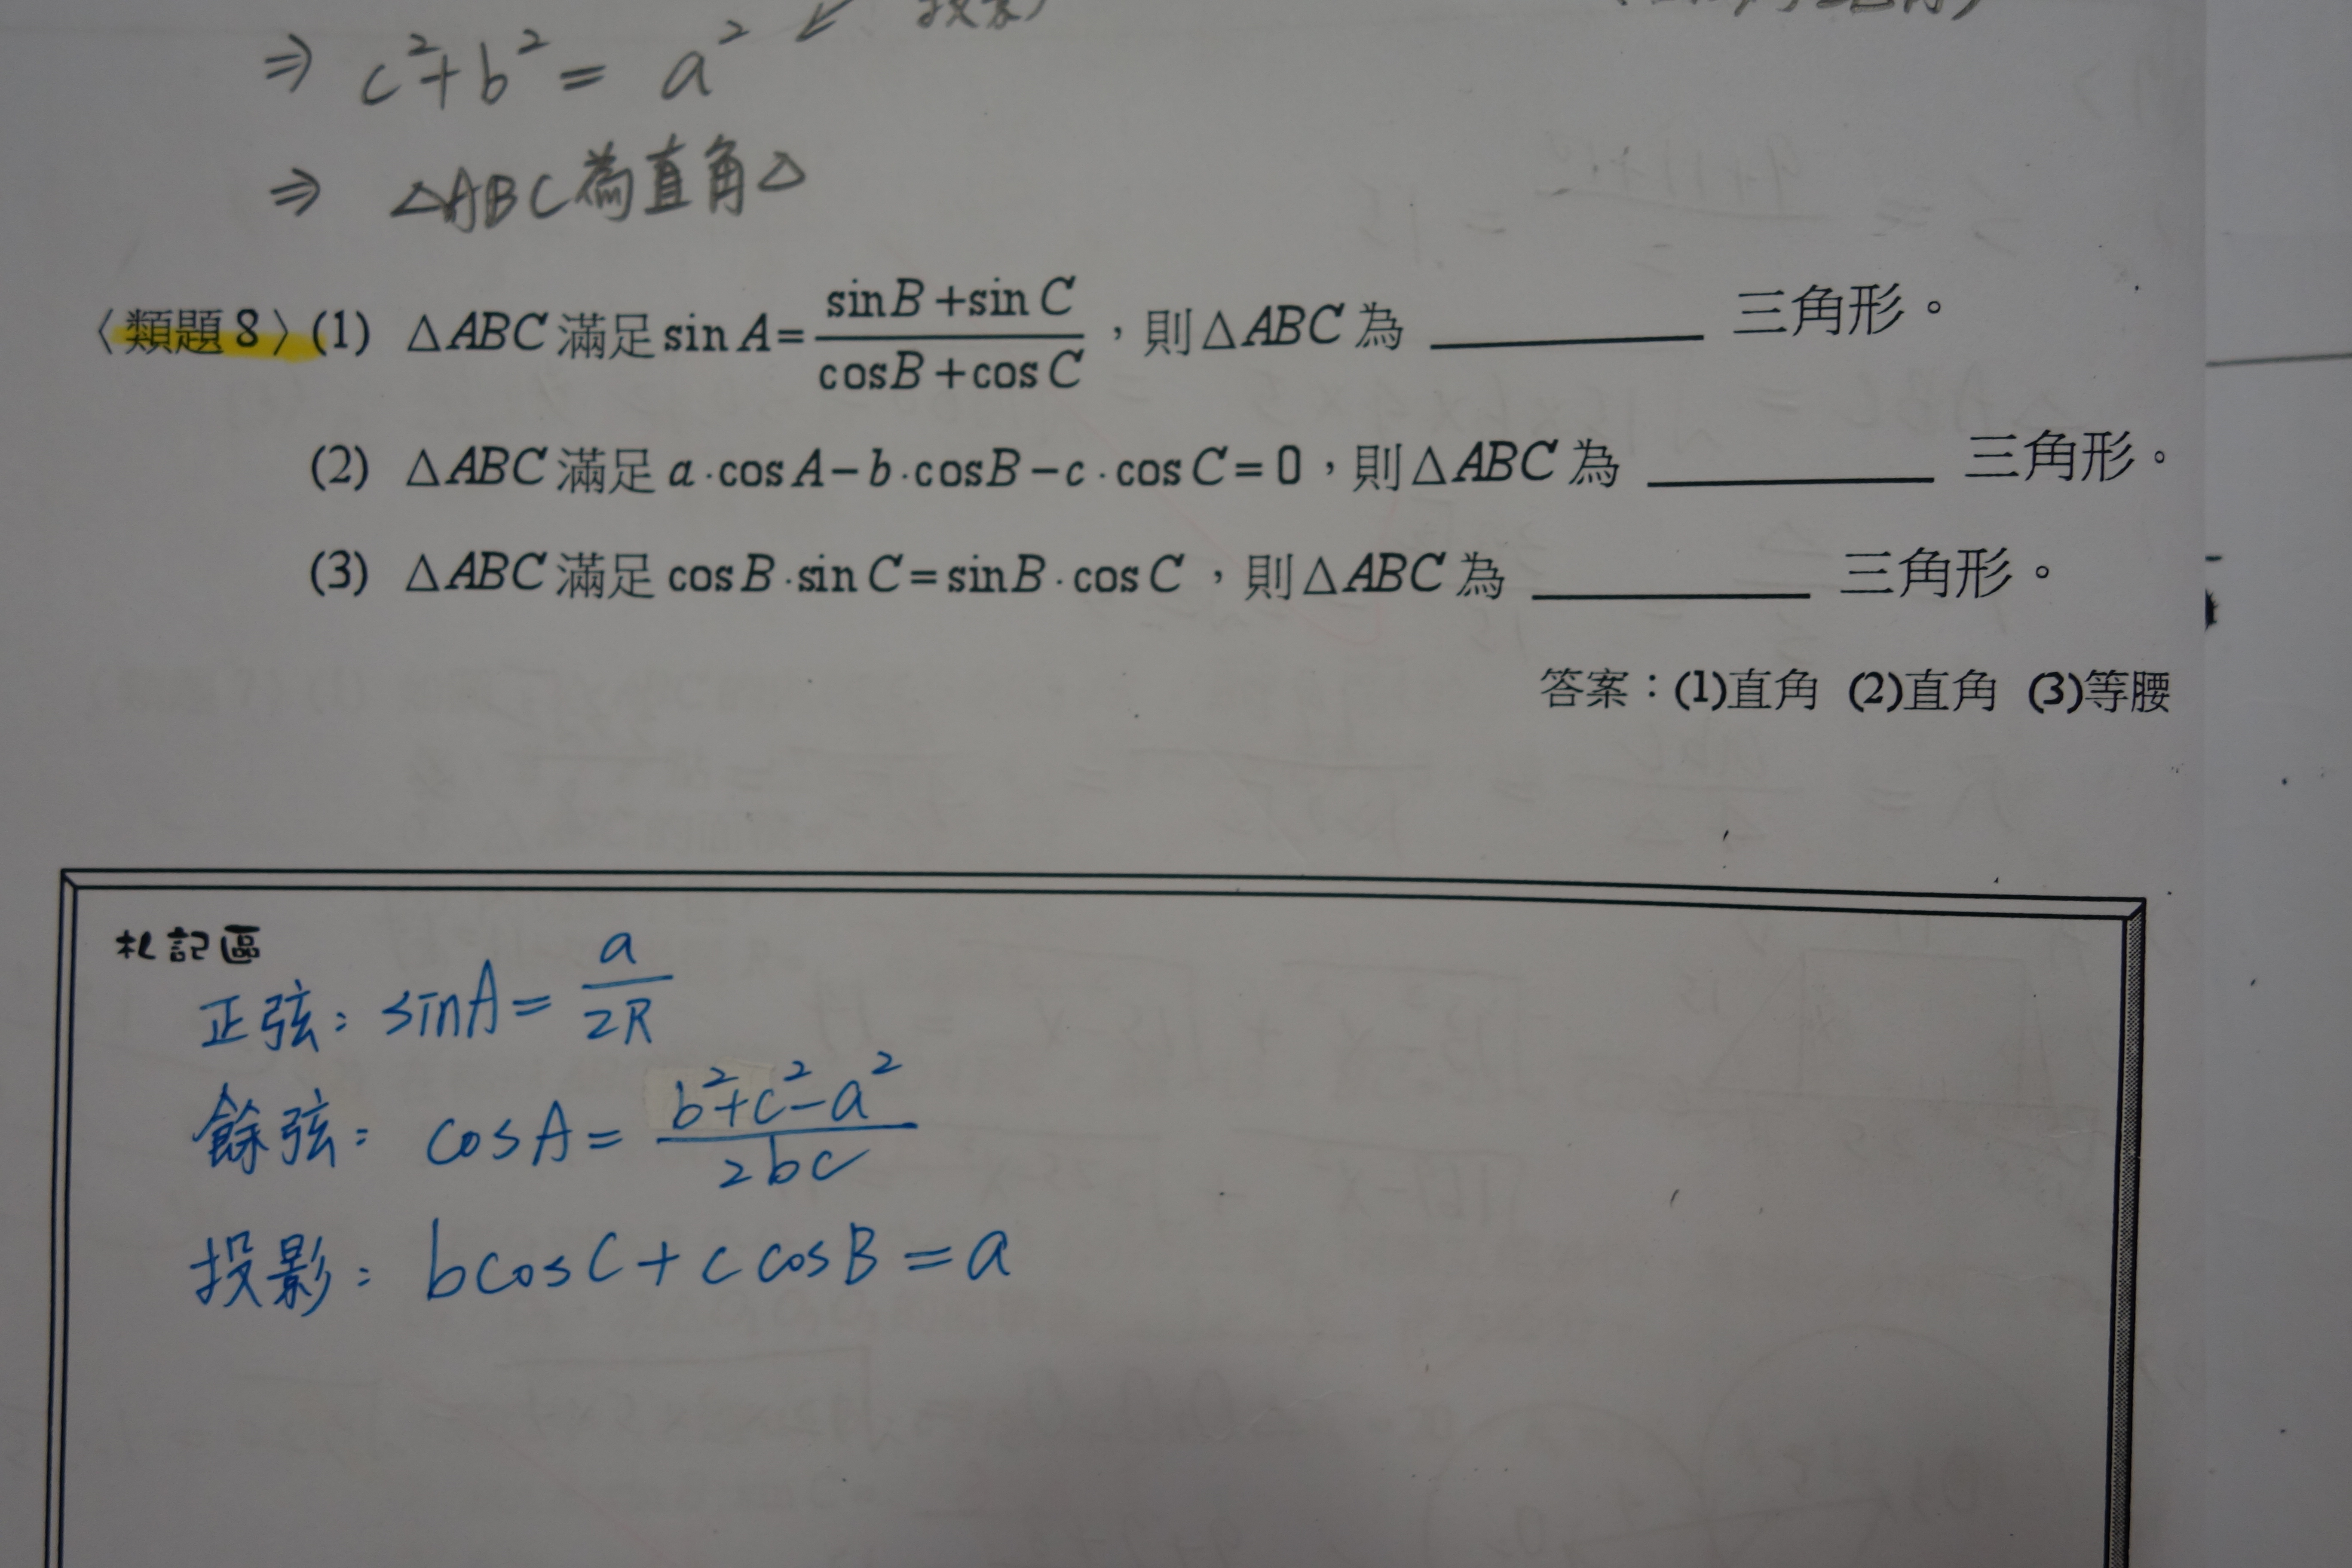 ⇒ c²+b² = a²
⇒ △ABC為直角△
〈類題8〉(1) △ABC 滿足 sin A = (sin B + sin C)/(cos B + cos C)，則△ABC 為 ________ 三角形。
(2) △ABC 滿足 a·cos A − b·cos B − c·cos C = 0，則△ABC 為 ________ 三角形。
(3) △ABC 滿足 cos B·sin C = sin B·cos C，則△ABC 為 ________ 三角形。
答案：(1)直角 (2)直角 (3)等腰
札記區
正弦: sinA = a/2R
餘弦: cosA = (b²+c²−a²)/2bc
投影: bcosC + c cosB = a